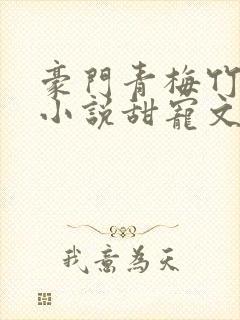 豪門青梅竹
小說甜寵文
我意為天